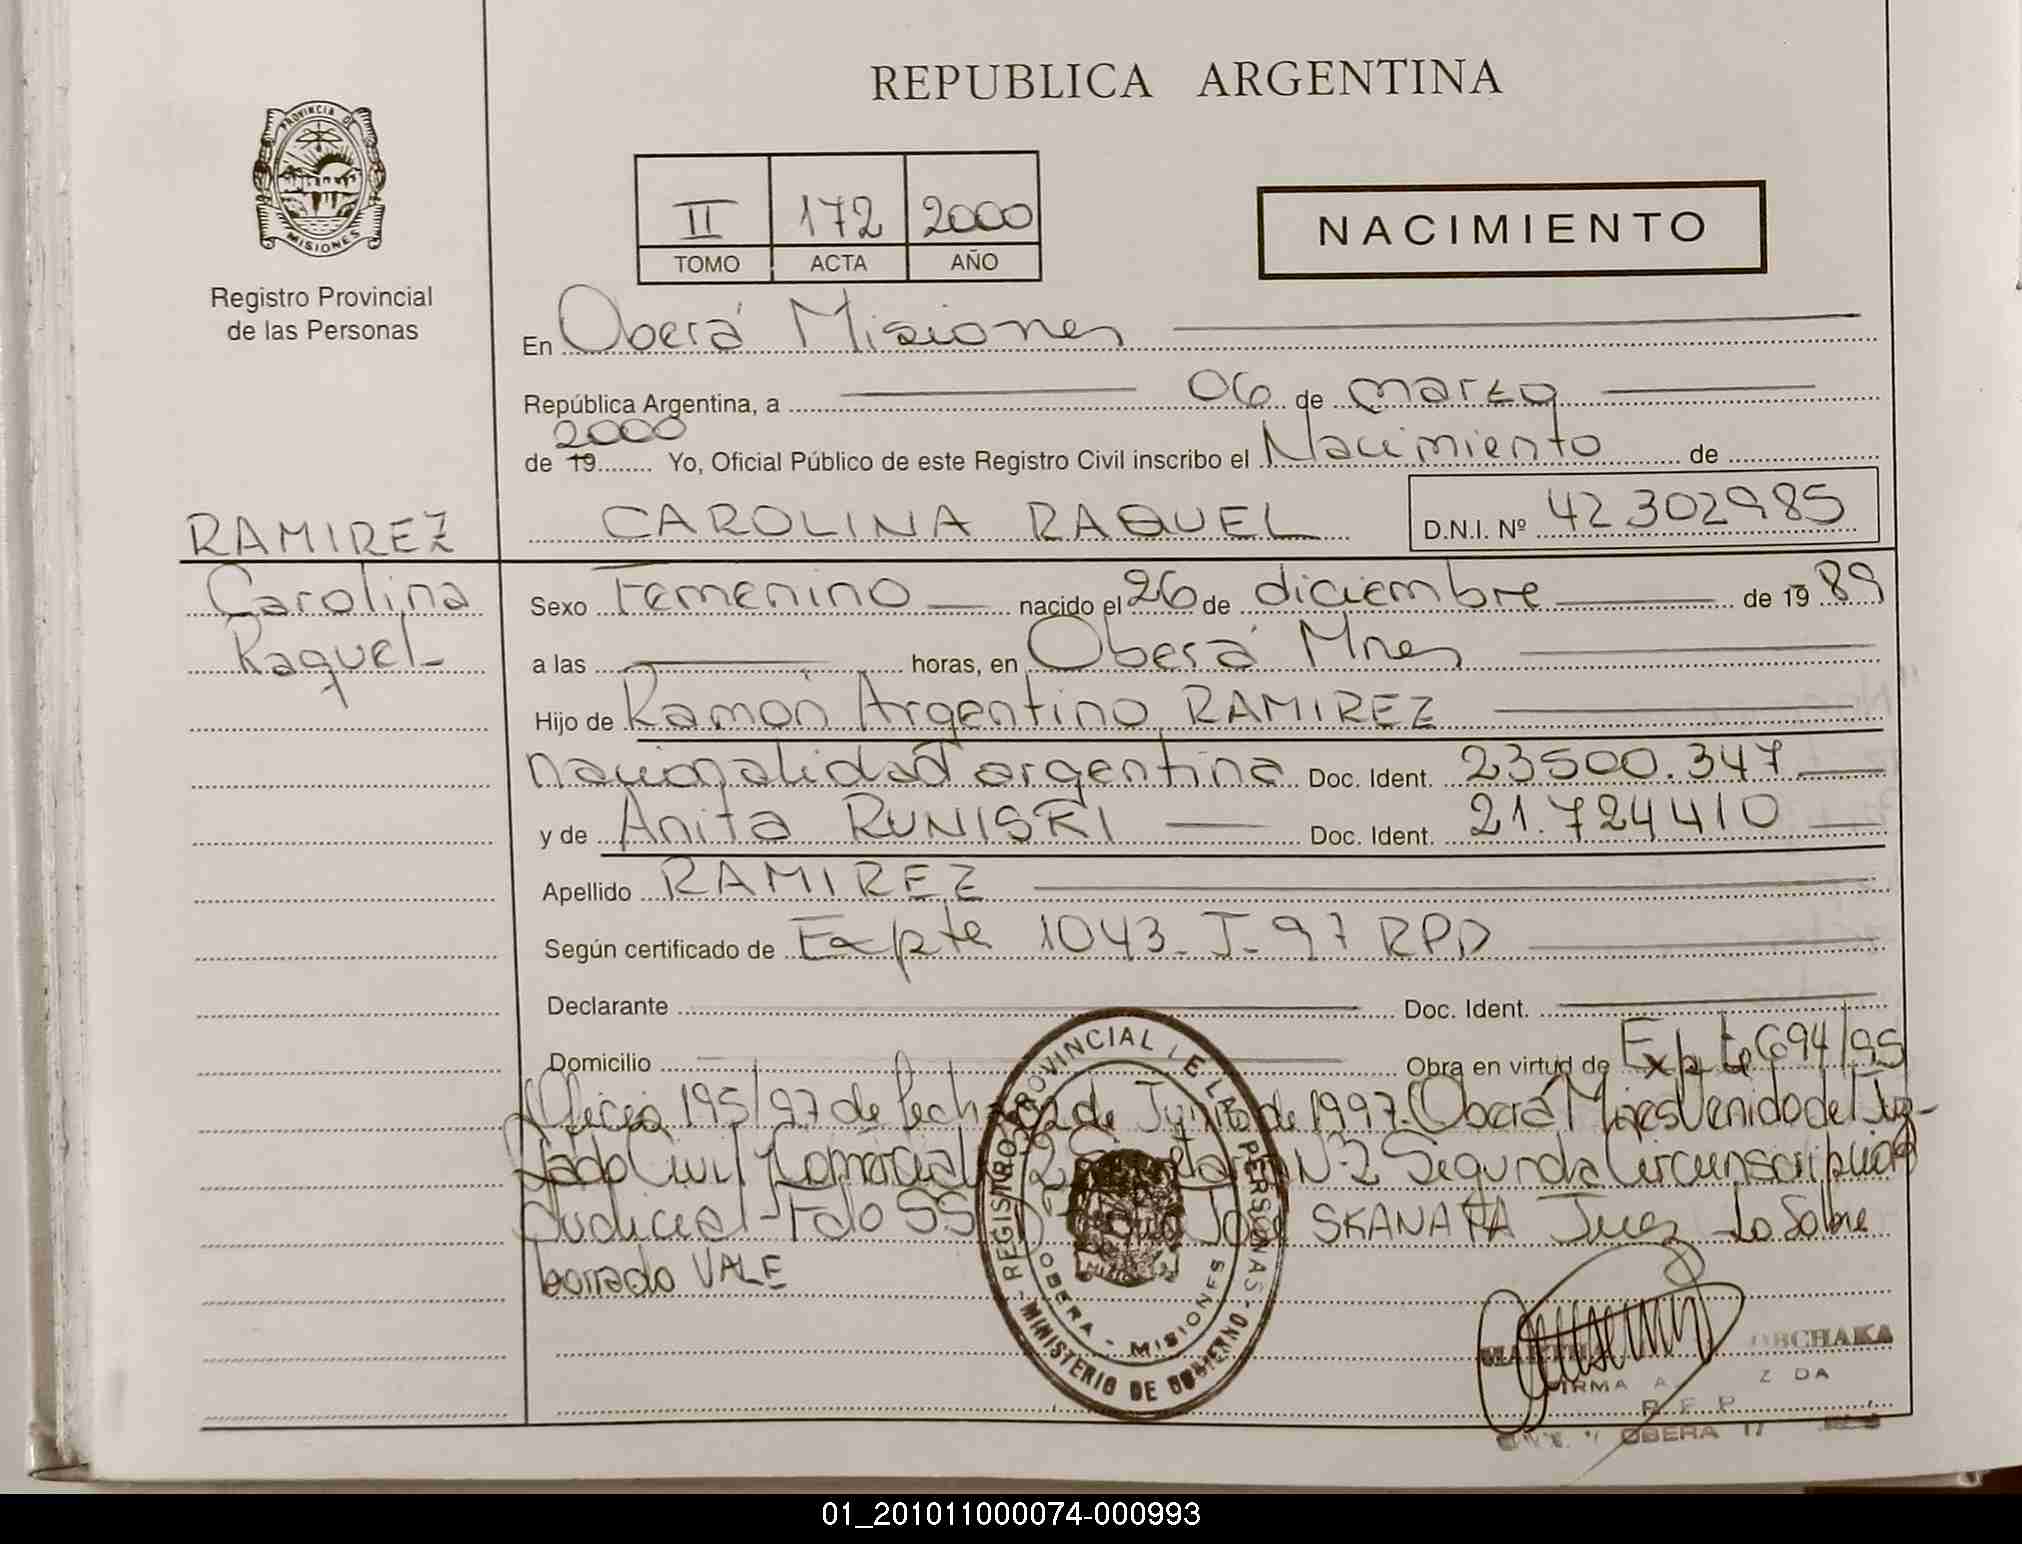 REPUBLICA ARGENTINA
PROVINCIA DE
MISIONES
Registro Provincial
de las Personas
II 172 2000
TOMO ACTA AÑO
NACIMIENTO
En Oberá Misiones
República Argentina, a 06 de marzo
2000
de 19 Yo, Oficial Público de este Registro Civil inscribo el Nacimiento de
RAMIREZ
Carolina
Raquel
CAROLINA RAQUEL D.N.I. Nº 42 302985
Sexo Femenino nacido el 26 de diciembre de 19 89
a las horas, en Oberá Mnes
Hijo de Ramón Argentino RAMIREZ
nacionalidad argentina Doc. Ident. 23500.347
y de Anita RUNISKI Doc. Ident. 21.724410
Apellido RAMIREZ
Según certificado de Expte 1043-J-97 RPD
Declarante Doc. Ident.
Domicilio Obra en virtud de Expte 694/95
Oficio 195/97 de fecha 02 de Junio de 1997. Oberá Mnes Venido del Juz-
gado Civil y Comercial 2 Secretaria N-2 Segunda Circunscripción
Judicial-Fdo SS José SKANATA Juez Lo Sobre
borrado VALE
REGISTRO PROVINCIAL DE LAS PERSONAS
MINISTERIO DE GOBIERNO
OBERA - MISIONES
FIRMA A
OBERA
01_201011000074-000993